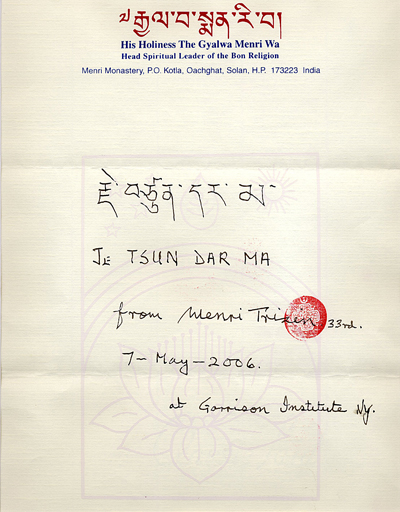 ༧རྒྱལ་བ་སྨན་རི་བ།
His Holiness The Gyalwa Menri Wa
Head Spiritual Leader of the Bon Religion
Menri Monastery, P.O. Kotla, Oachghat, Solan, H.P. 173223 India
རྗེ་བཙུན་དར་མ་
JE TSUN DAR MA
from Menri Trizen 33rd.
7-May-2006.
at Garrison Institute Ny.